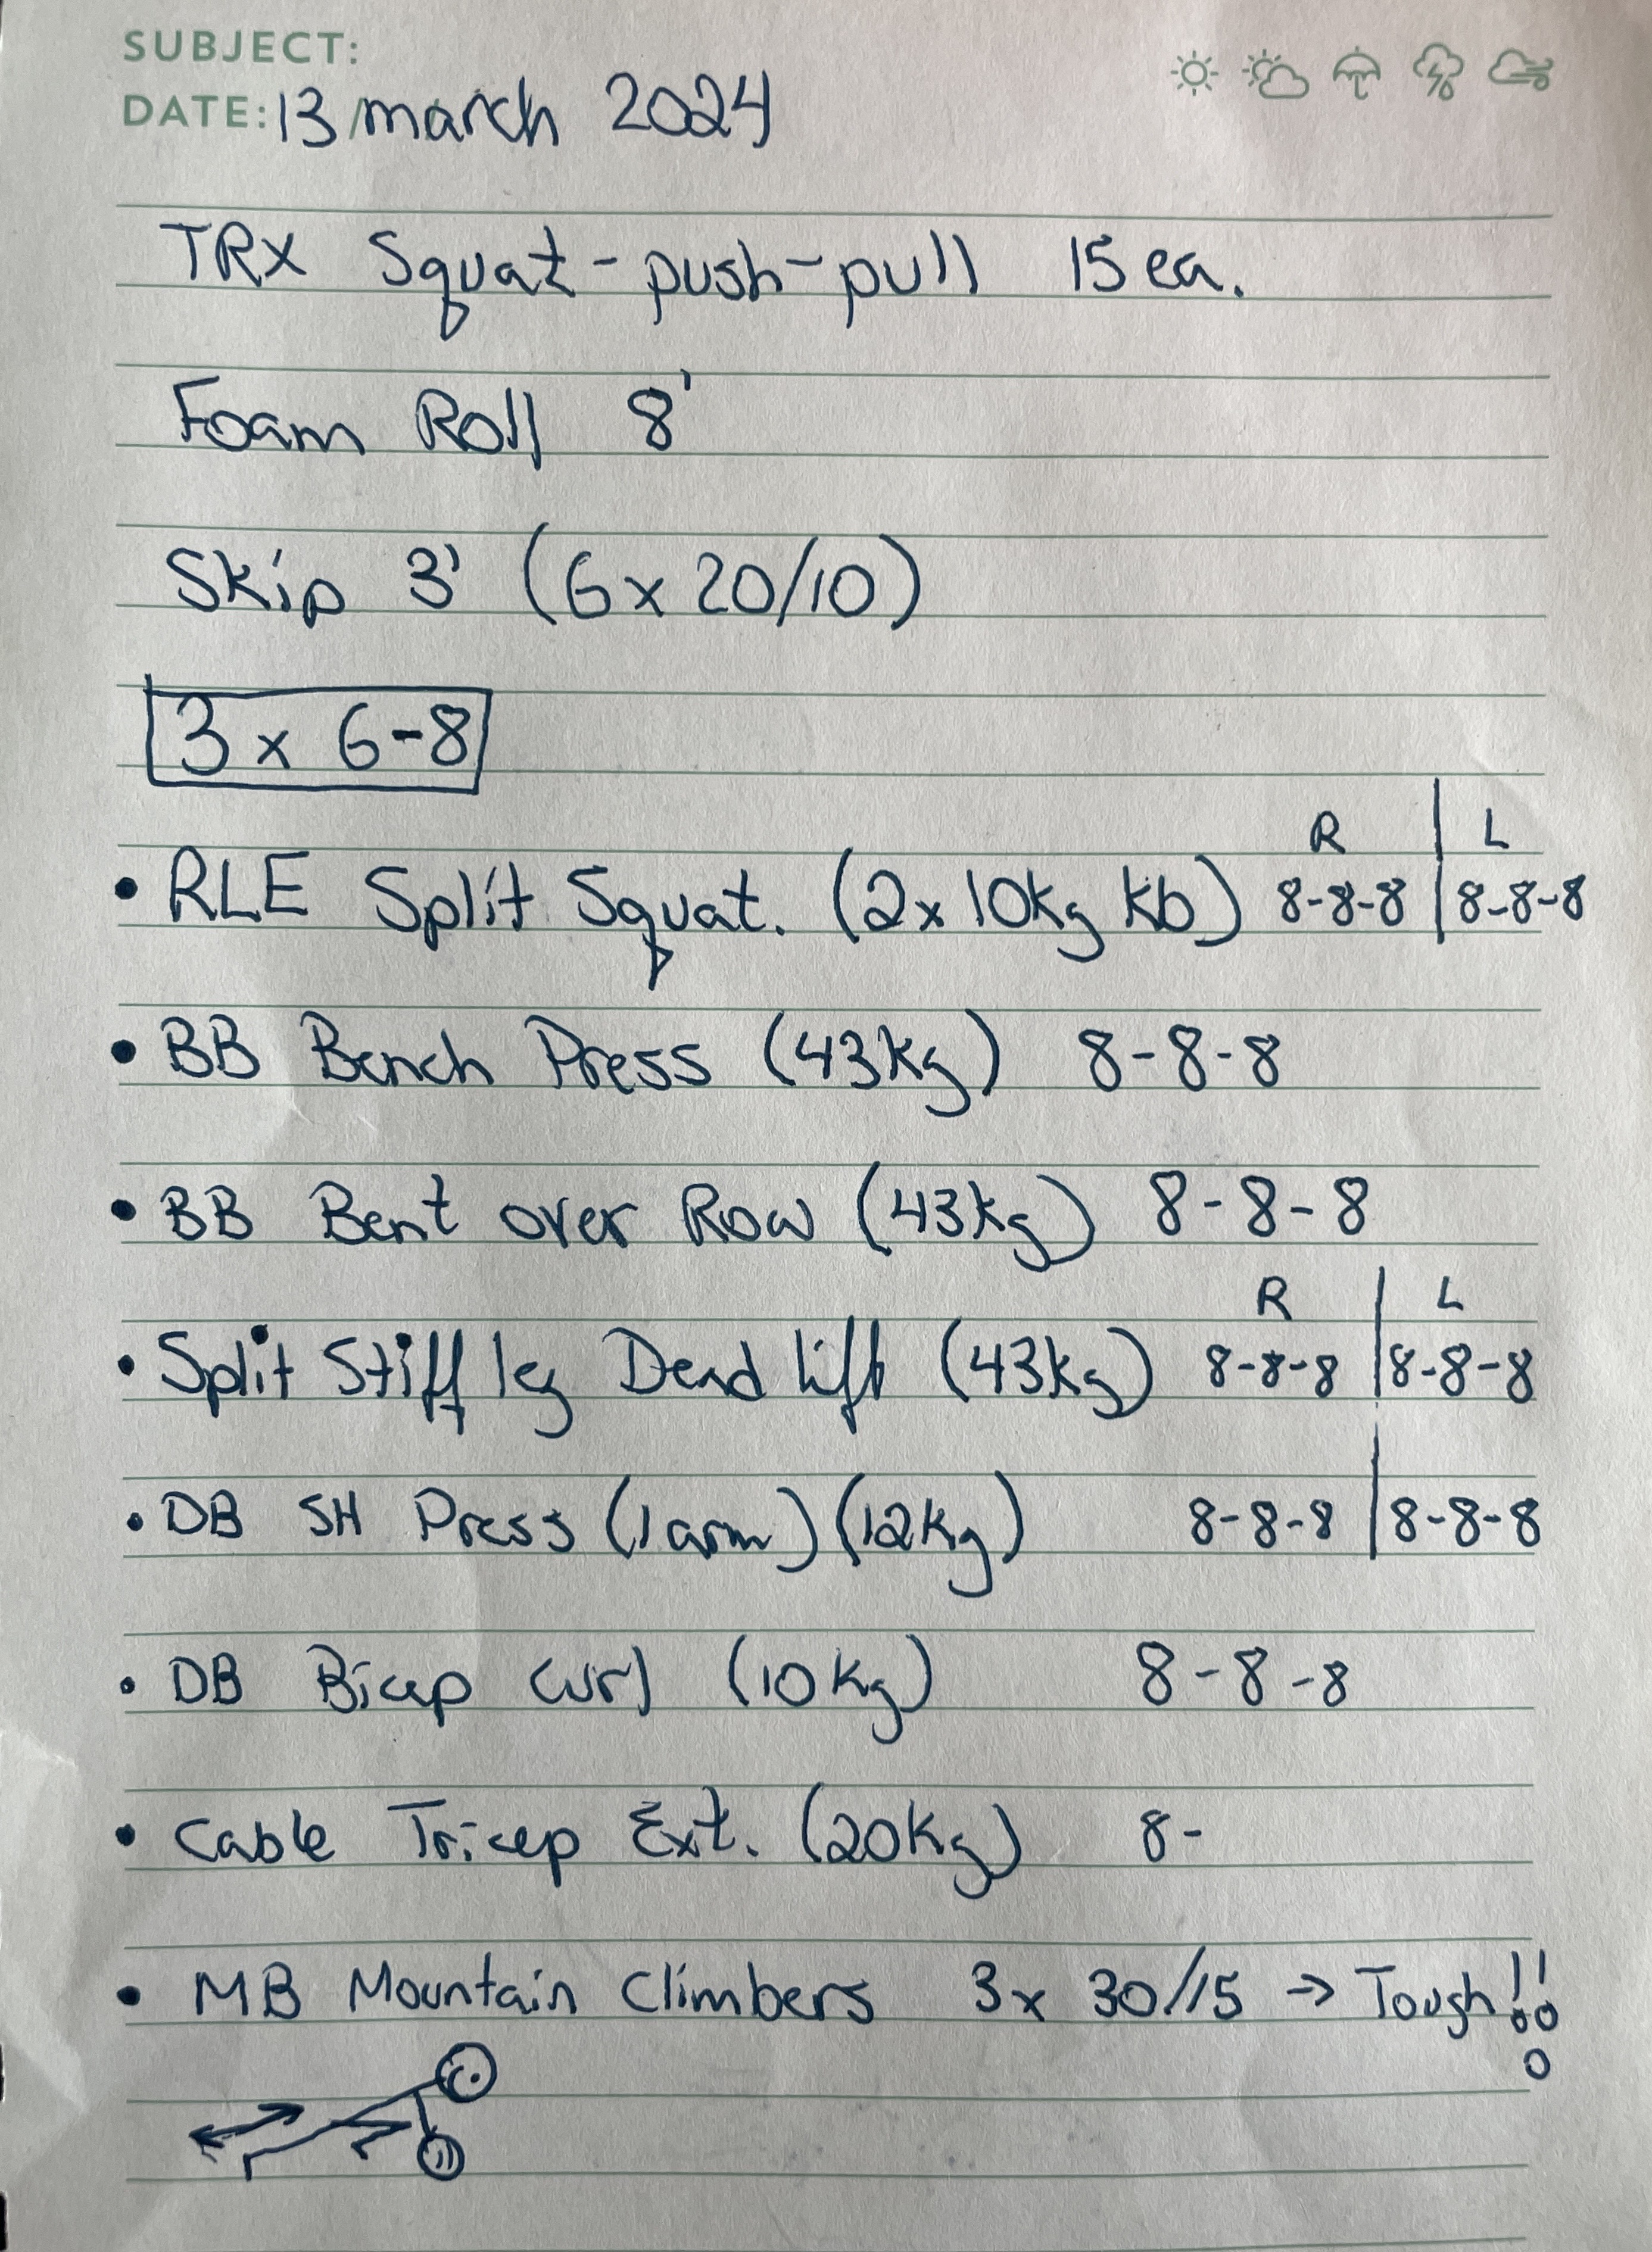 SUBJECT:
DATE: 13 march 2024
TRX Squat-push-pull 15 ea.
Foam Roll 8'
Skip 3' (6x 20/10)
3 x 6-8
R | L
• RLE Split Squat. (2x 10kg kb) 8-8-8 | 8-8-8
• BB Bench Press (43kg) 8-8-8
• BB Bent over Row (43kg) 8-8-8
R | L
• Split Stiff leg Dead lift (43kg) 8-8-8 | 8-8-8
• DB SH Press (1 arm) (12kg) 8-8-8 | 8-8-8
• DB Bicep curl (10kg) 8-8-8
• Cable Tricep Ext. (20kg) 8-
• MB Mountain Climbers 3x 30/15 → Tough!!